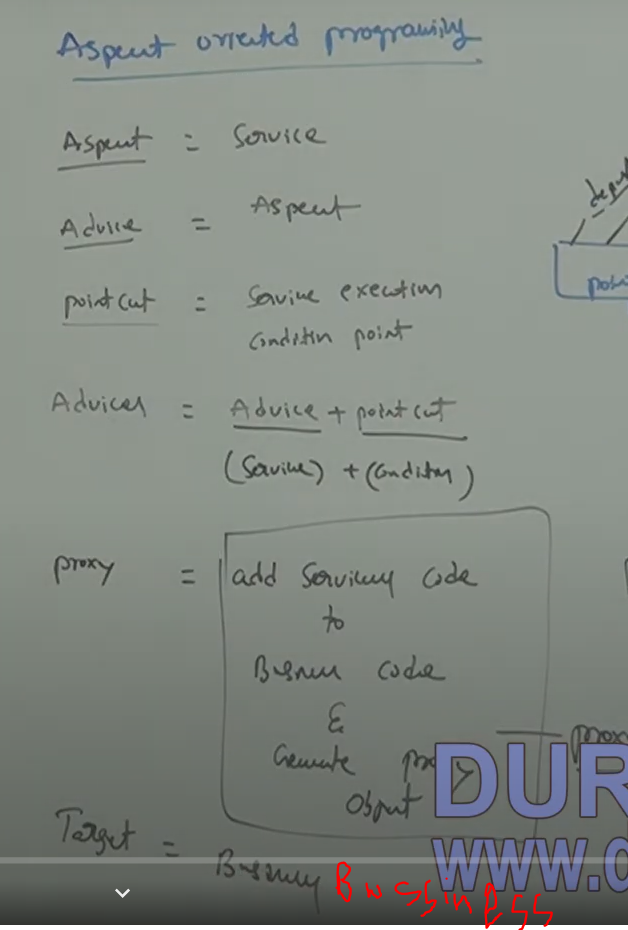 Aspect oriented programming
Aspect = Service
Advice = Aspect
pointcut = Service execution
condition point
Advices = Advice + pointcut
(Service) + (Condition)
proxy = add Services code
to
Business code
&
Generate proxy
Object
Target = Business
BussinESS
DUR
www.d